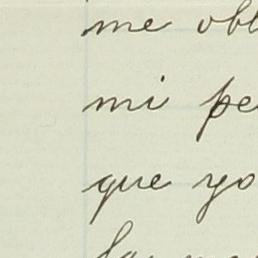 me obl
mi pe
que yo